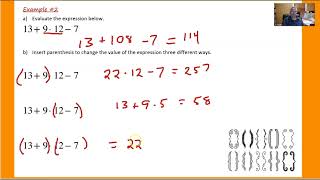 Example #2
a) Evaluate the expression below.
13 + 9 · 12 − 7
13 + 108 − 7 = 114
b) Insert parenthesis to change the value of the expression three different ways.
(13 + 9) · 12 − 7
22 · 12 − 7 = 257
13 + 9 · (12 − 7)
13 + 9 · 5 = 58
(13 + 9) · (12 − 7)
= 22